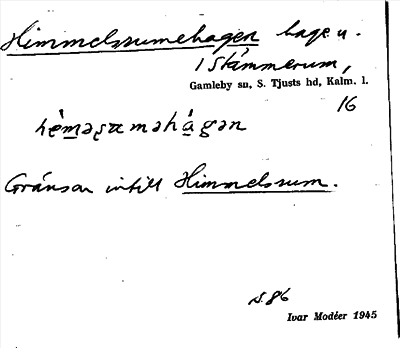 Himmelsrumehagen hage u.
1 Stämmerum,
Gamleby sn, S. Tjusts hd, Kalm. l.
16
Gränsar intill Himmelsrum.
s. 86
Ivar Modéer 1945